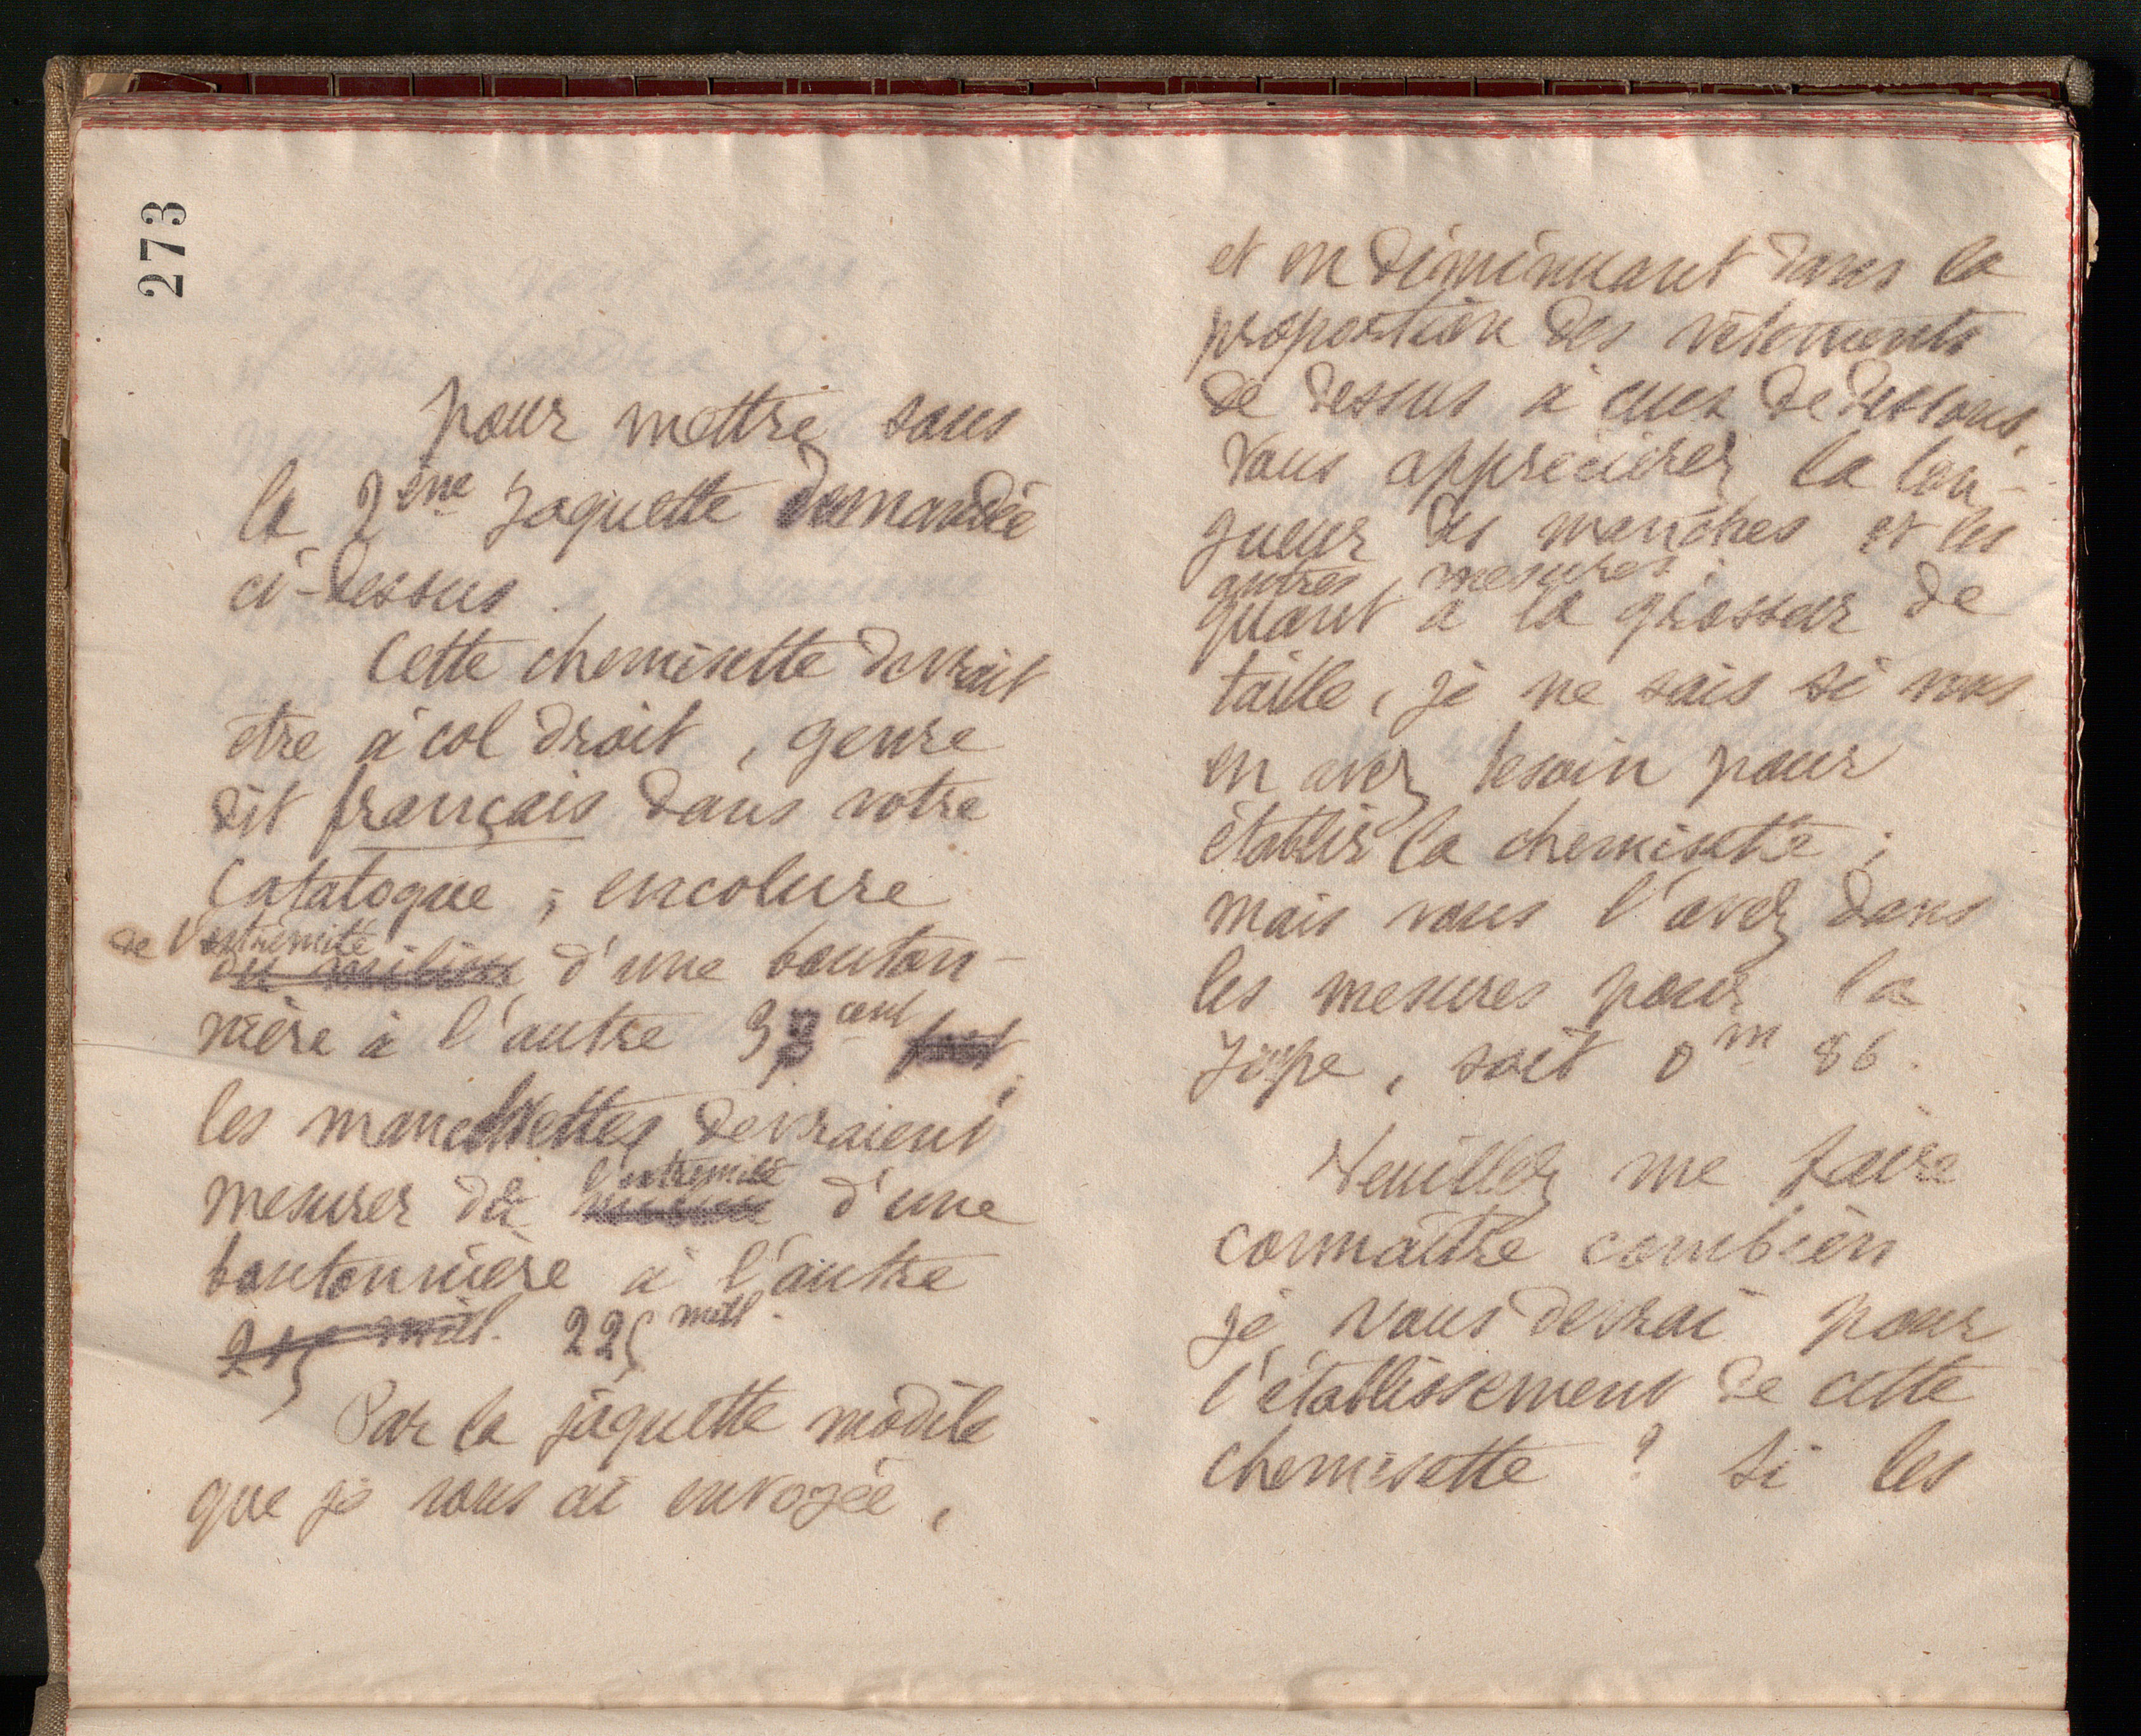 273
pour mettre sous
la 2ème Jaquette demandée
ci-dessus.
Cette chemisette devrait
être à col droit, genre
dit français dans votre
Catalogue ; encolure
de l'extrémité
du milieu d'une bouton-
nière à l'autre 38 cent
les manchettes devraient
l'extrémité
mesurer de milieu d'une
boutonnière à l'autre
215 mill. 225 mill.
Par la jaquette modèle
que je vous ai envoyée,
et en diminuant dans la
proportion des vêtements
de dessus à ceux de dessous,
vous apprécierez la lon-
gueur des manches et les
autres mesures ;
quant à la grosseur de
taille, je ne sais si vous
en avez besoin pour
établir la chemisette ;
mais vous l'avez dans
les mesures pour la
Jupe, soit 0m 86.
Veuillez me faire
connaître combien
je vous devrai pour
l'établissement de cette
chemisette ? Si les